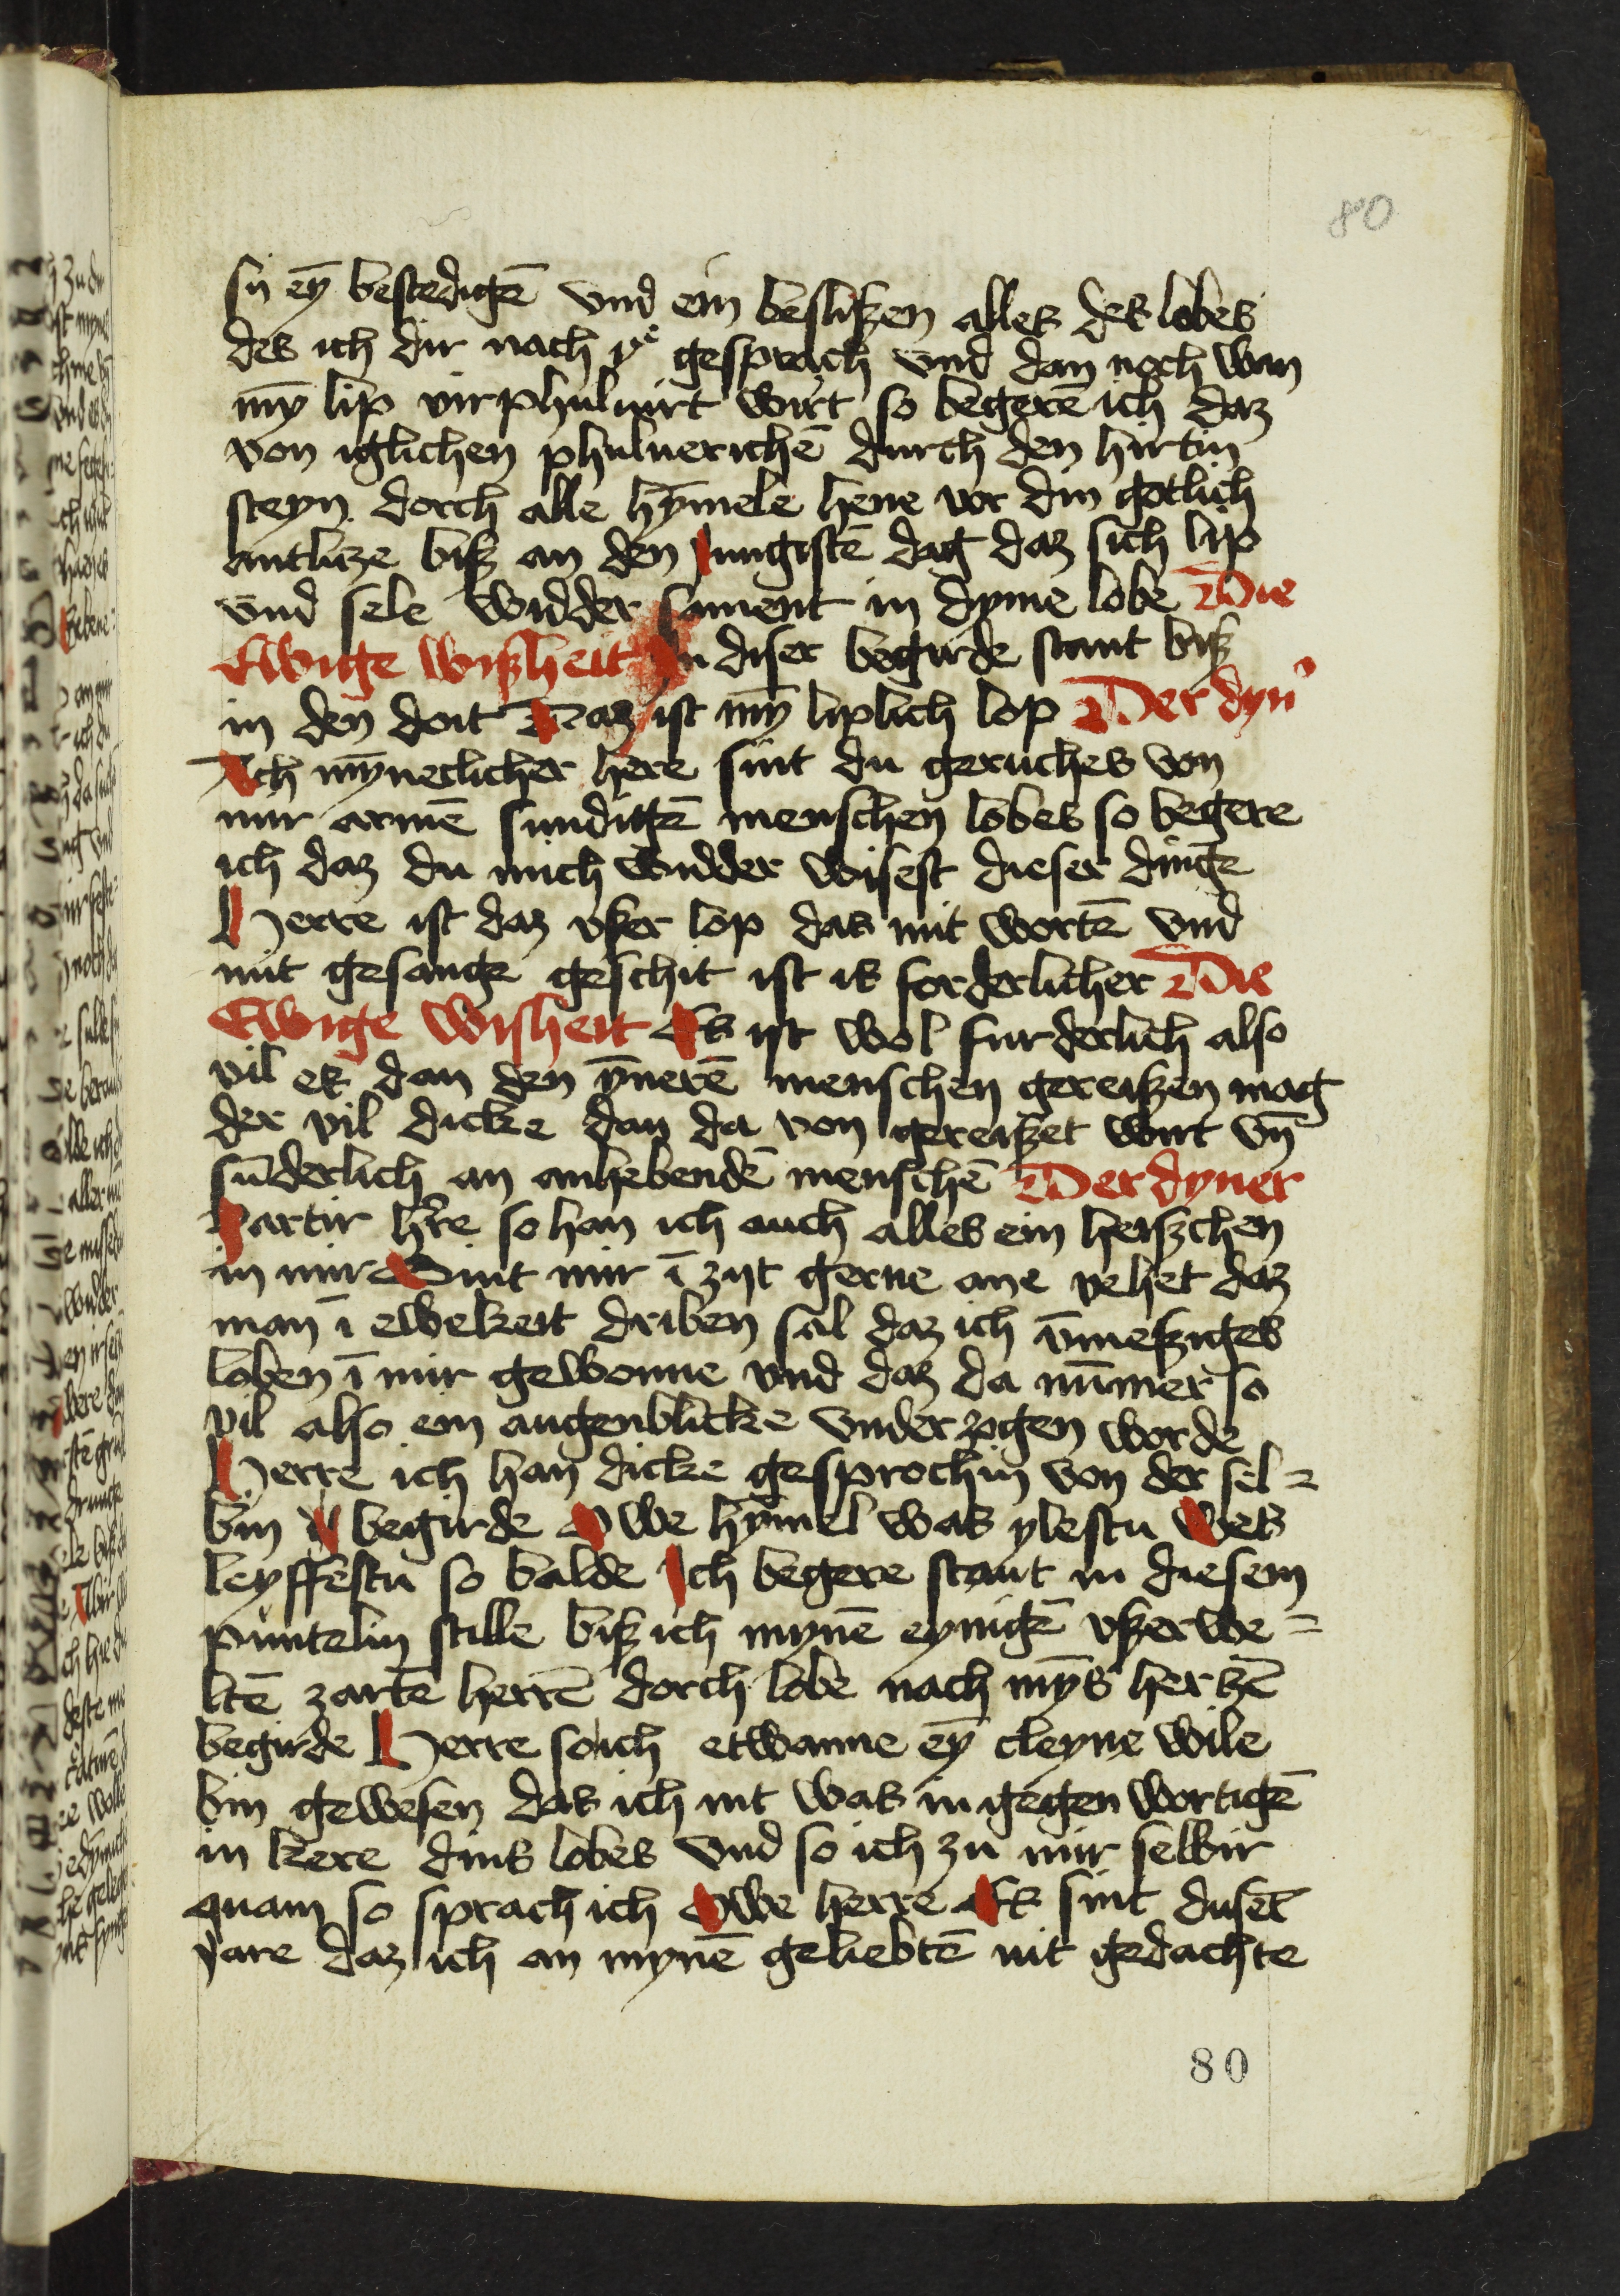 80
sij eȳ bestedigē vnd ein besliſzen alles des lobes
des ich dir nach ye gesprach vnd dan noch wan
mȳ lip virphuluirt wirt so begerē ich daz
von iglichen phuluerichē durch den hirtin
steyn dorch alle hȳmele hene vor din gotlich
antlitze biſz an den Jungistē dag daz sich lip
vnd sele widder sament in dyme lobe Die
Ewige wiſzheit In diser begirde stant biſz
in den doit Daz ist mȳ liplich lop Der dyn'
Ach mȳneclicher here sint du geruches von
mir armē sundigē menschen lobes so begere
ich daz du mich widder wisest dieser dinge
Herre ist daz vſzer lop das mit wortē vnd
mit gesange geschit ist is forderlicher Die
Ewige Wisheit Es ist wol furderlich also
vil es dan den ȳnerē menschen gereiſzen mag
der vil dicke dan da von gereiſzet wirt vn̄
sūderlich an anhebendē menschē Der dyner
Partir hr̄e so han ich auch alles ein heiſzchen
in mir Sint mir ī zijt gerne ane vehet daz
man ī ewekeit driben sal daz ich v̄meſziges
loben ī mir gewonne vnd daz da nūmer so
vil also ein augenblicke vnderzogen worde
Herre ich han dicke gesprochin von der sel=
bin begirde Owe hȳmel was ylestu Wes
leyffestu so balde Ich begere stant in diesem
puntelin stille biſz ich mynē eynigē vſzerwe=
ltē zartē herrē dorch lobe nach mȳs hertzē
begirde Herre so ich etwanne eȳ cleyne wile
bin gewesen das ich nit was in gegen wortigē
in kere dins lobes vnd so ich zu mir selbir
quam so sprach ich Owe herre Es sint dusēt
jare daz ich an mynē geliebtē nit gedachte
80